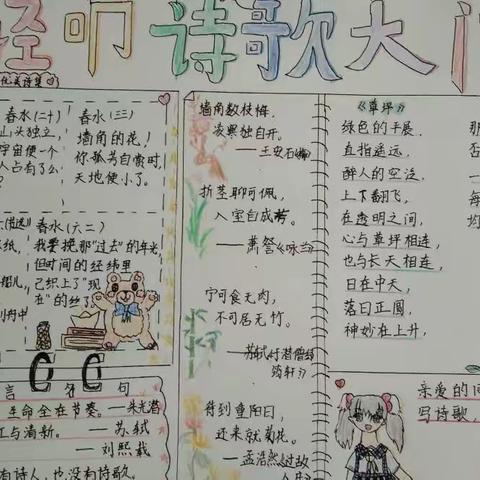 轻叩诗歌大门
优美诗集
春水(二十)
山头独立,
宇宙便一个
人占有了么
?
春水(三三)
墙角的花!
你孤芳自赏时,
天地便小了。
春水(六二)
我要挽那“过去”的年光
但时间的经纬里
已织上了“现
在”的丝了
纸,
船儿,
舟中
名句
生命全在节奏。—朱光潜
工与清新。 —苏轼
—刘熙载
有诗人,也没有诗歌。
墙角数枝梅,
凌寒独自开。
—王安石《梅》
折茎聊可佩,
入室自成芳。
—萧詧《咏兰》
宁可食无肉,
不可居无竹。
—苏轼《於潜僧绿
筠轩》
待到重阳日,
还来就菊花。
—孟浩然《过故
人庄》
《草坪》
绿色的平展,
直指遥远,
醉人的空泛,
上下翻飞,
在透明之间,
心与草坪相连
也与长天相连,
日在中天,
落日正圆,
神妙在上升,
那
否
一
每
均
亲爱的同
写诗歌,